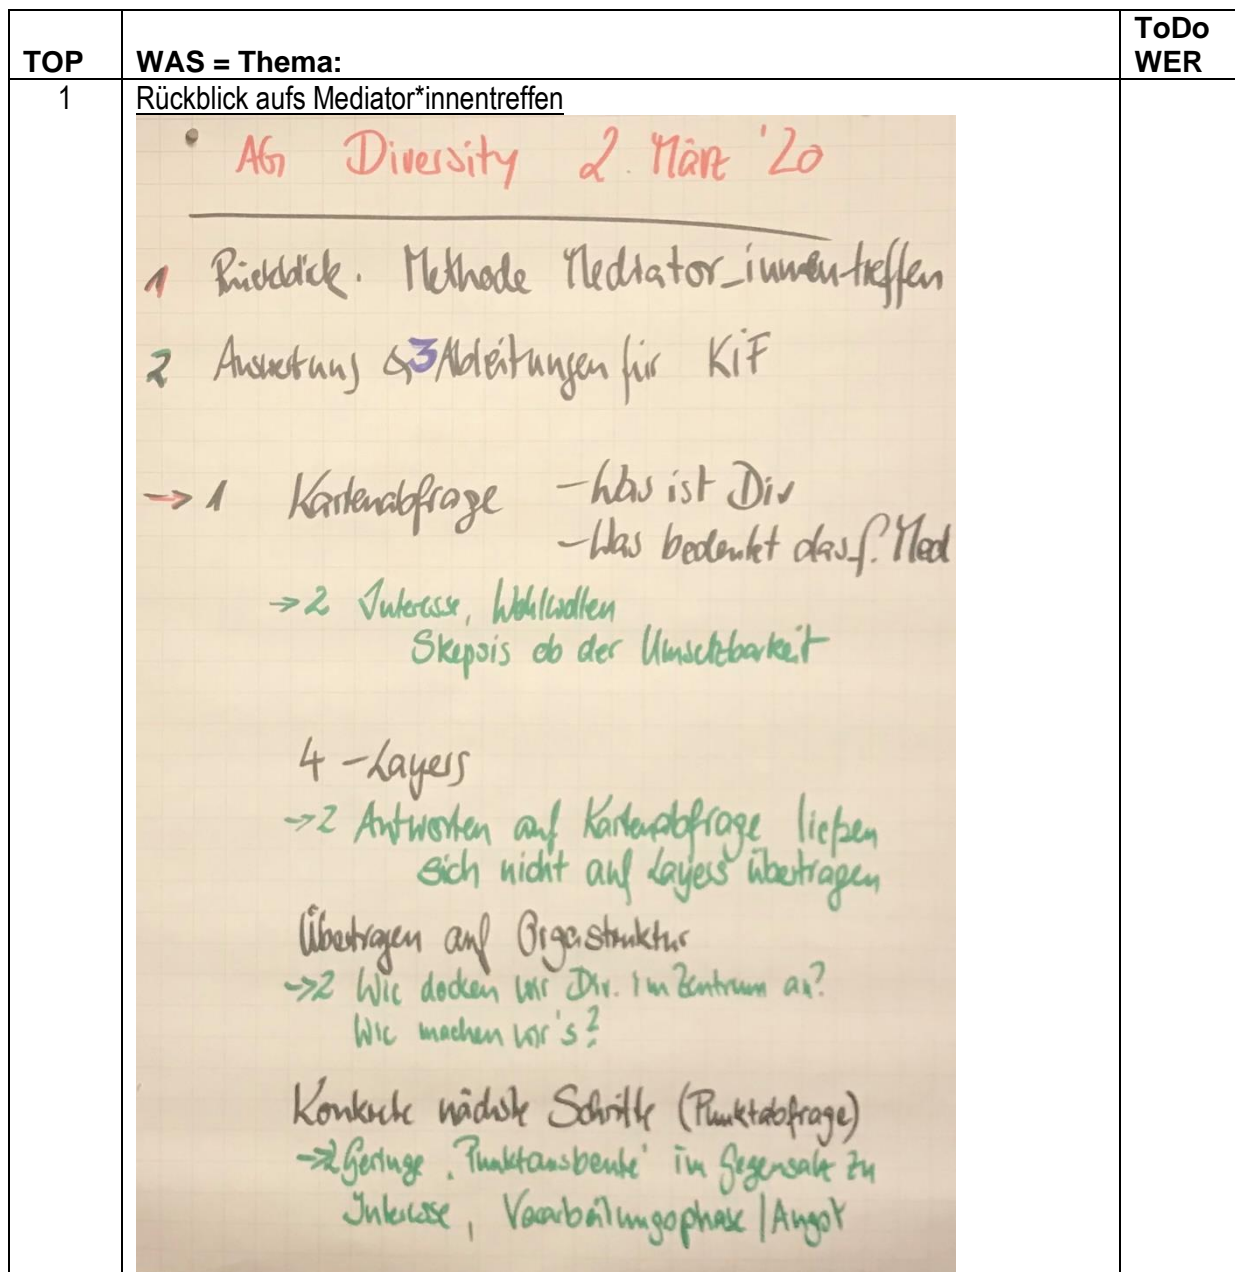 TOP
WAS = Thema:
ToDo
WER
1
Rückblick aufs Mediator*innentreffen
AG Diversity 2. März '20
1 Rückblick. Methode Mediator_innentreffen
2 Auswertung & 3 Ableitungen für KiF
→ 1 Kartenabfrage - Was ist Div
- Was bedeutet das f. Med
→ 2 Interesse, Wohlwollen
Skepsis ob der Umsetzbarkeit
4 - Layers
→ 2 Antworten auf Kartenabfrage ließen
sich nicht auf Layers übertragen
Übertragen auf Orgastruktur
→ 2 Wie docken wir Div. im Zentrum an?
Wie machen wir's?
Konkrete nächste Schritte (Punktabfrage)
→ 2 Geringe 'Punktausbeute' im Gegensatz zu
Interesse, Vorarbeitungsphase / Angot